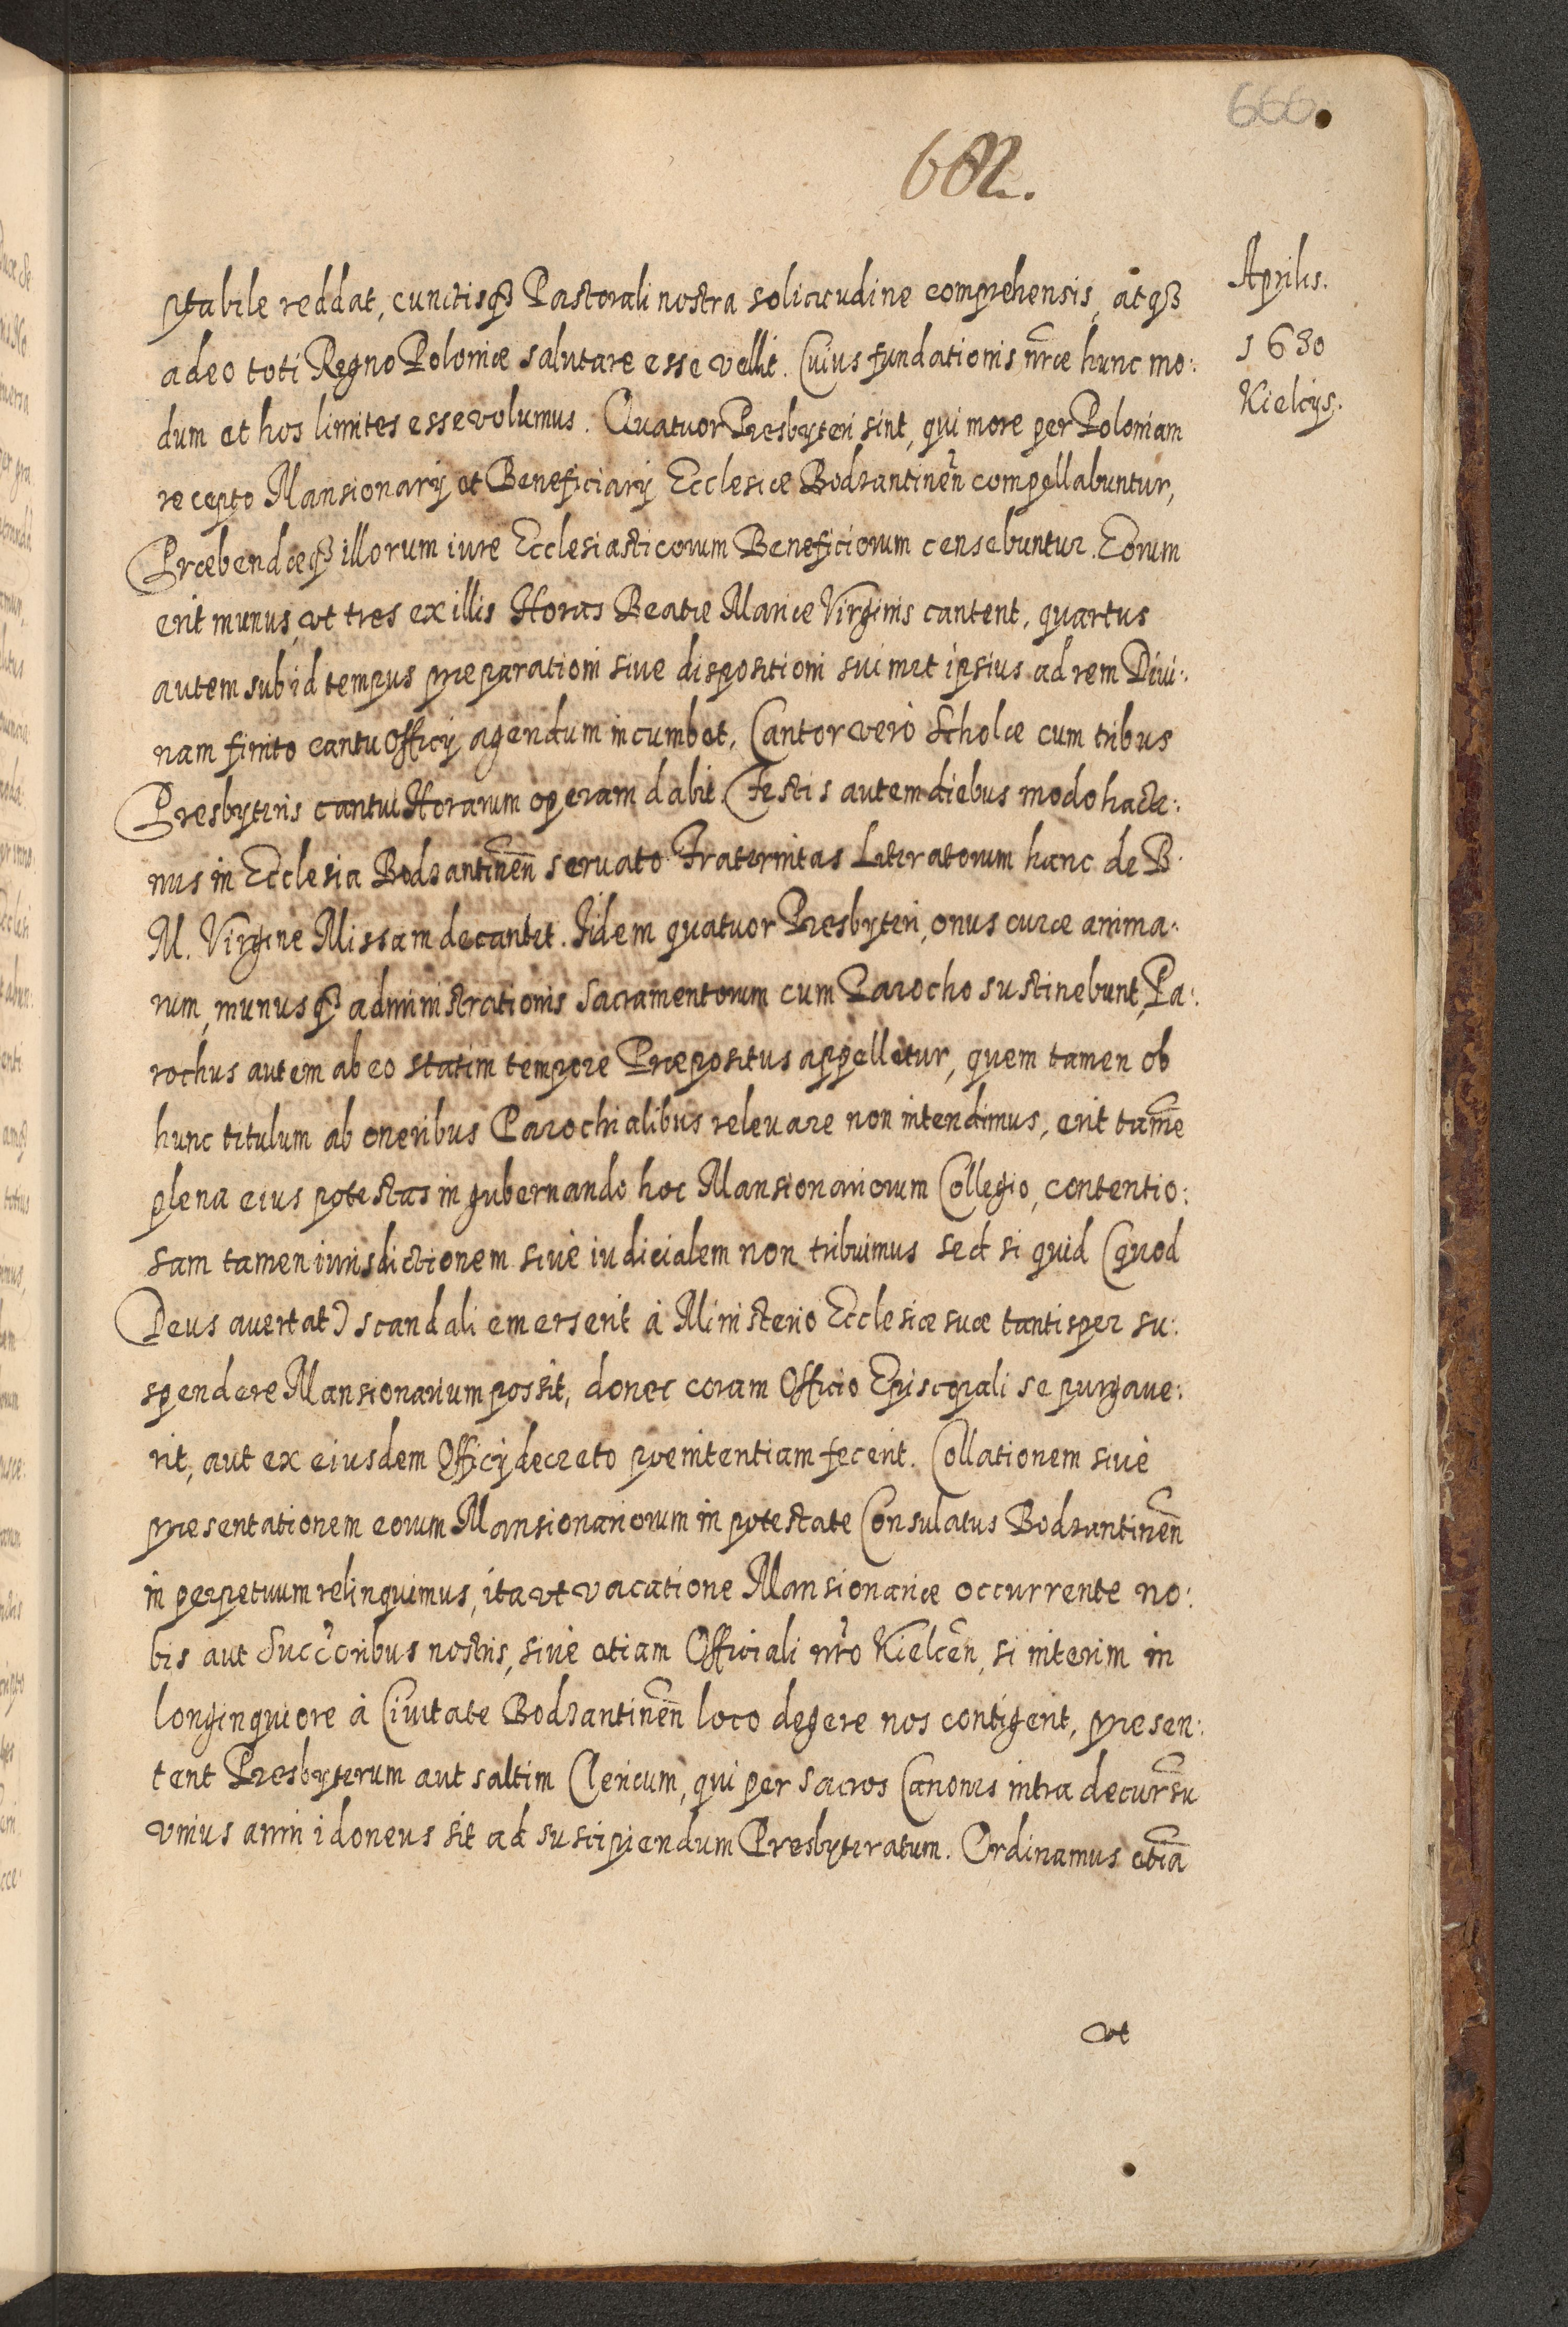 666.
682.
Aprilis.
1630
Kielcijs.
ptabile reddat, cunctisqȝ Pastorali nostra solicitudine comprehensis, atqȝ
adeo toti Regno Poloniæ salutare esse vellit. Cuius fundationis nr̃æ hunc mo:
dum et hos limites esse volumus. Quatuor Presbyteri sint, qui more per Poloniam
recepto Mansionarij et Beneficiarij Ecclesiæ Bodzantineñ compellabuntur,
Præbendæqȝ illorum iure Ecclesiasticorum Beneficiorum censebuntur. Eorum
erit munus, vt tres ex illis Horas Beatæ Mariæ Virginis cantent, quartus
autem sub id tempus præparationi siue dispositioni sui met ipsius ad rem Diui:
nam finito cantu Officij agendum incumbet, Cantor verò Scholæ cum tribus
Presbyteris cantui Horarum operam dabit. Festis autem diebus modo hacte:
nus in Ecclesia Bodzantineñ seruato Fraternitas Literatorum hanc de B.
M. Virgine Missam decantet. Iidem quatuor Presbyteri, onus curæ anima:
rum, munusqȝ administrationis Sacramentorum cum Parocho sustinebunt, Pa:
rochus autem ab eo statim tempore Præpositus appelletur, quem tamen ob
hunc titulum ab oneribus Parochialibus releuare non intendimus, erit tamẽ
plena eius potestas in gubernando hoc Mansionariorum Collegio, contentio:
sam tamen iurisdictionem siuè iudicialem non tribuimus sed si quid (quod
Deus auertat) scandali emerserit à Ministerio Ecclesiæ suæ tantisper su:
spendere Mansionarium possit, donec coram Officio Episcopali se purgaue:
rit, aut ex eiusdem Officij decreto pœnitentiam fecerit. Collationem siuè
præsentationem eorum Mansionariorum in potestate Consulatus Bodzantineñ
in perpetuum relinquimus, ita vt vacatione Mansionariæ occurrente no:
bis aut Succ̃oribus nostris, siuè etiam Officiali nr̃o Kielceñ, si interim in
longinquiore à Ciuitate Bodzantineñ loco degere nos contigerit, præsen:
tent Presbyterum aut saltim Clericum, qui per sacros Canones intra decursũ
vnius anni idoneus sit ad suscipiendum Presbyteratum. Ordinamus etiã
vt